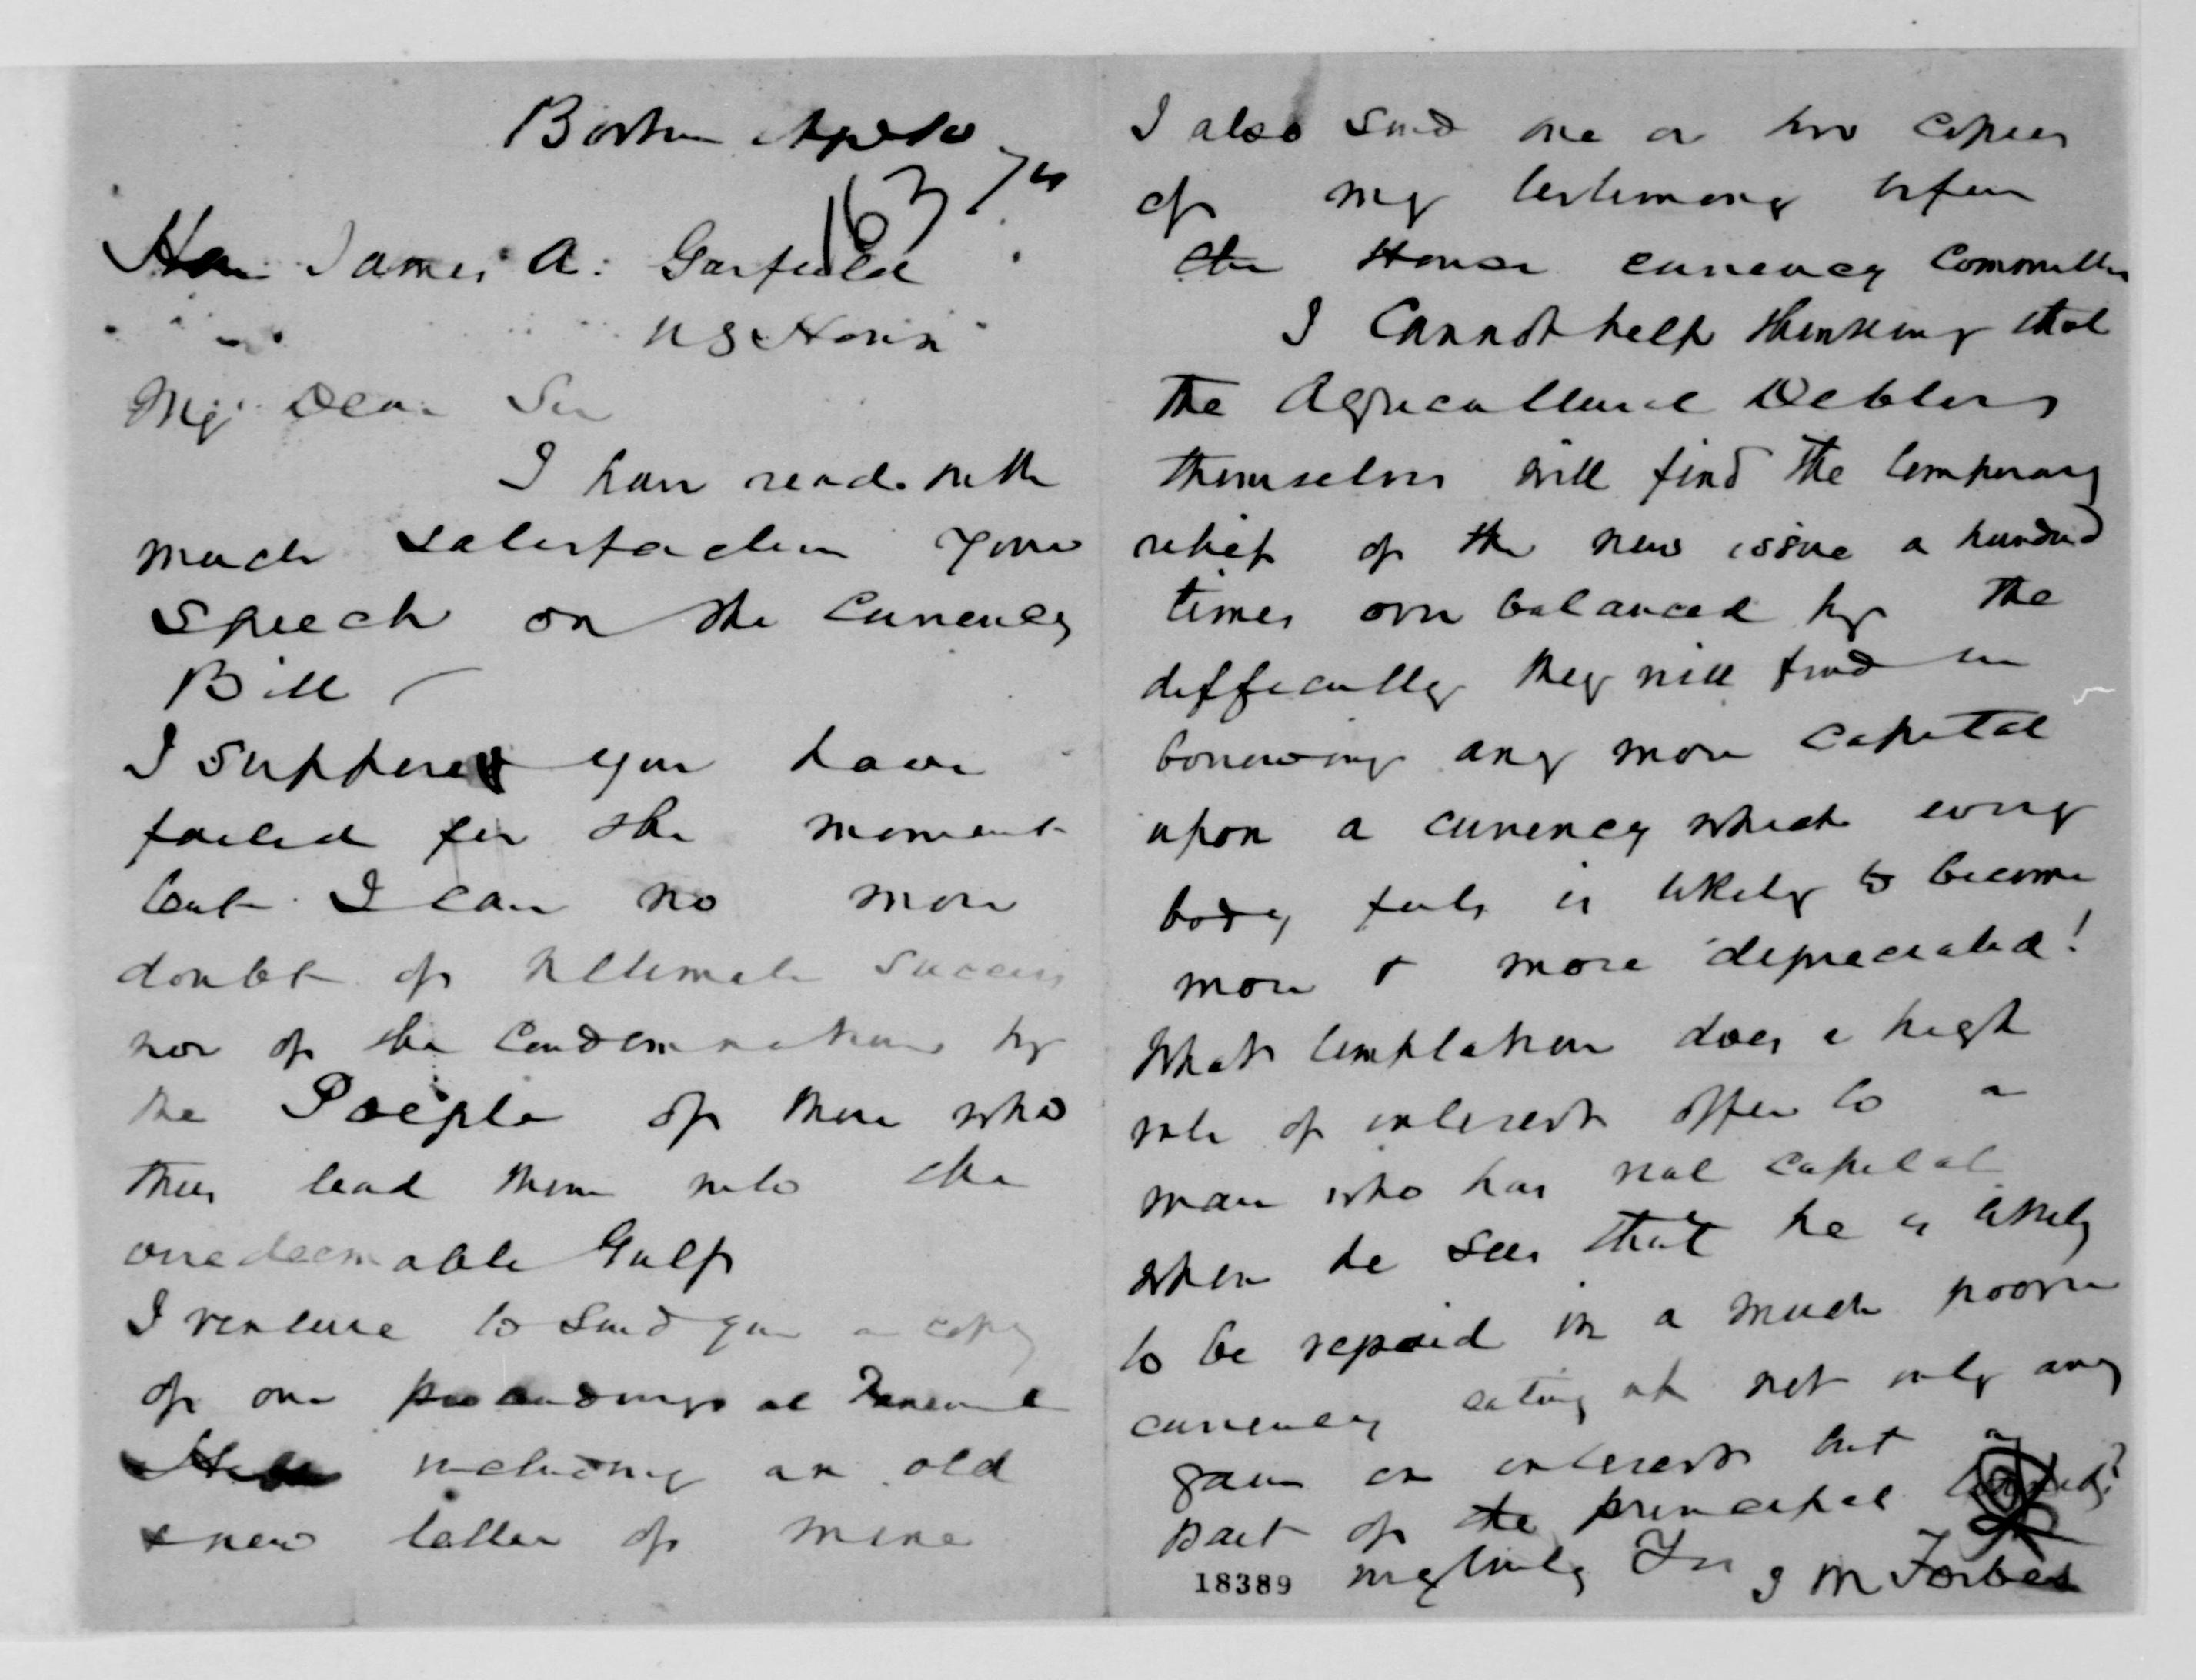 Boston Apl 10
74
163
Hon James A. Garfield
U S House
My Dear Sir
I have read with
much satisfaction your
speech on the Currency
Bill —
I suppose you have
failed for the moment
but I can no more
doubt of ultimate success
nor of the condemnation by
the People of those who
thus lead them into the
irredeemable Gulf
I venture to send you a copy
of our proceedings at Faneuil
Hall including an old
& new letter of mine
I also send one or two copies
of my testimony before
the House currency Committee
I Cannot help thinking that
the Agricultural Debtors
themselves will find the temporary
relief of the new issue a hundred
times over balanced by the
difficulty they will find in
borrowing any more capital
upon a currency which every
body feels is likely to become
more & more depreciated!
What temptation does a high
rate of interest offer to a
man who has real capital
when he sees that he is likely
to be repaid in a much poorer
currency eating up not only any
gain on interest but a
part of the principal
18389 very truly Yrs J M Forbes